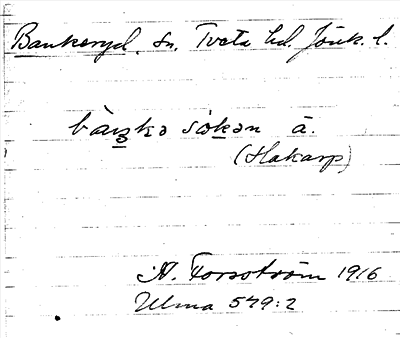 Bankeryd, sn. Tveta hd. Jönk. l.
bàŋkə sòkən ā.
(Hakarp)
N. Forsström 1916
Ulma 579:2